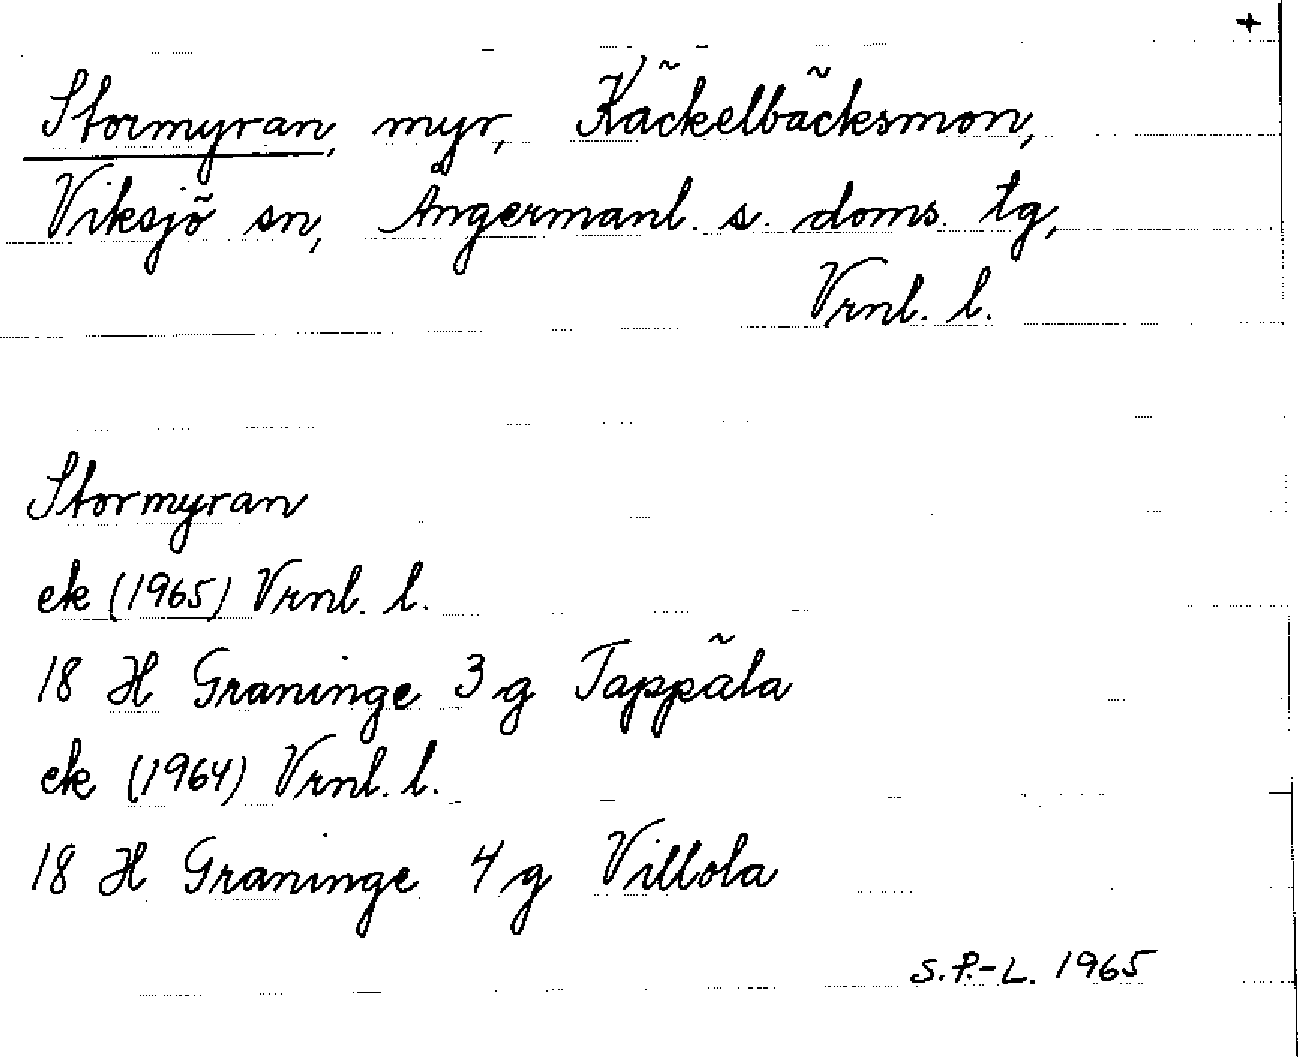 +
Stormyran, myr, Käckelbäcksmon,
Viksjö sn, Ångermanl. s. doms. tg,
Vrnl. l.
Stormyran
ek (1965) Vrnl. l.
18 H Graninge 3 g Tappäla
ek (1964) Vrnl. l.
18 H Graninge 4 g Villola
S.P.-L. 1965